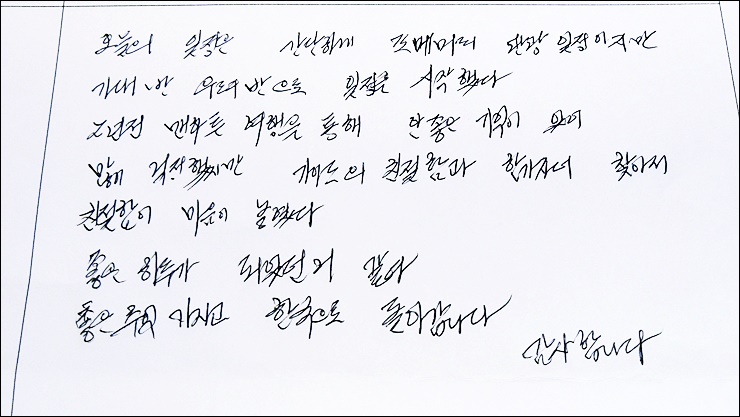 오늘의 일정은 간단하게 프메머리 관광 일정이지만
기대반 우려반으로 일정을 시작했다
2년전 패키지 여행을 통해 안좋은 기억이 있어
많이 걱정했지만 가이드의 친절함과 찾아서
친절함이 마음이 날렸다
좋은 하루가 되었던거 같다
좋은 추억 가지고 한국으로 돌아갑니다
감사합니다